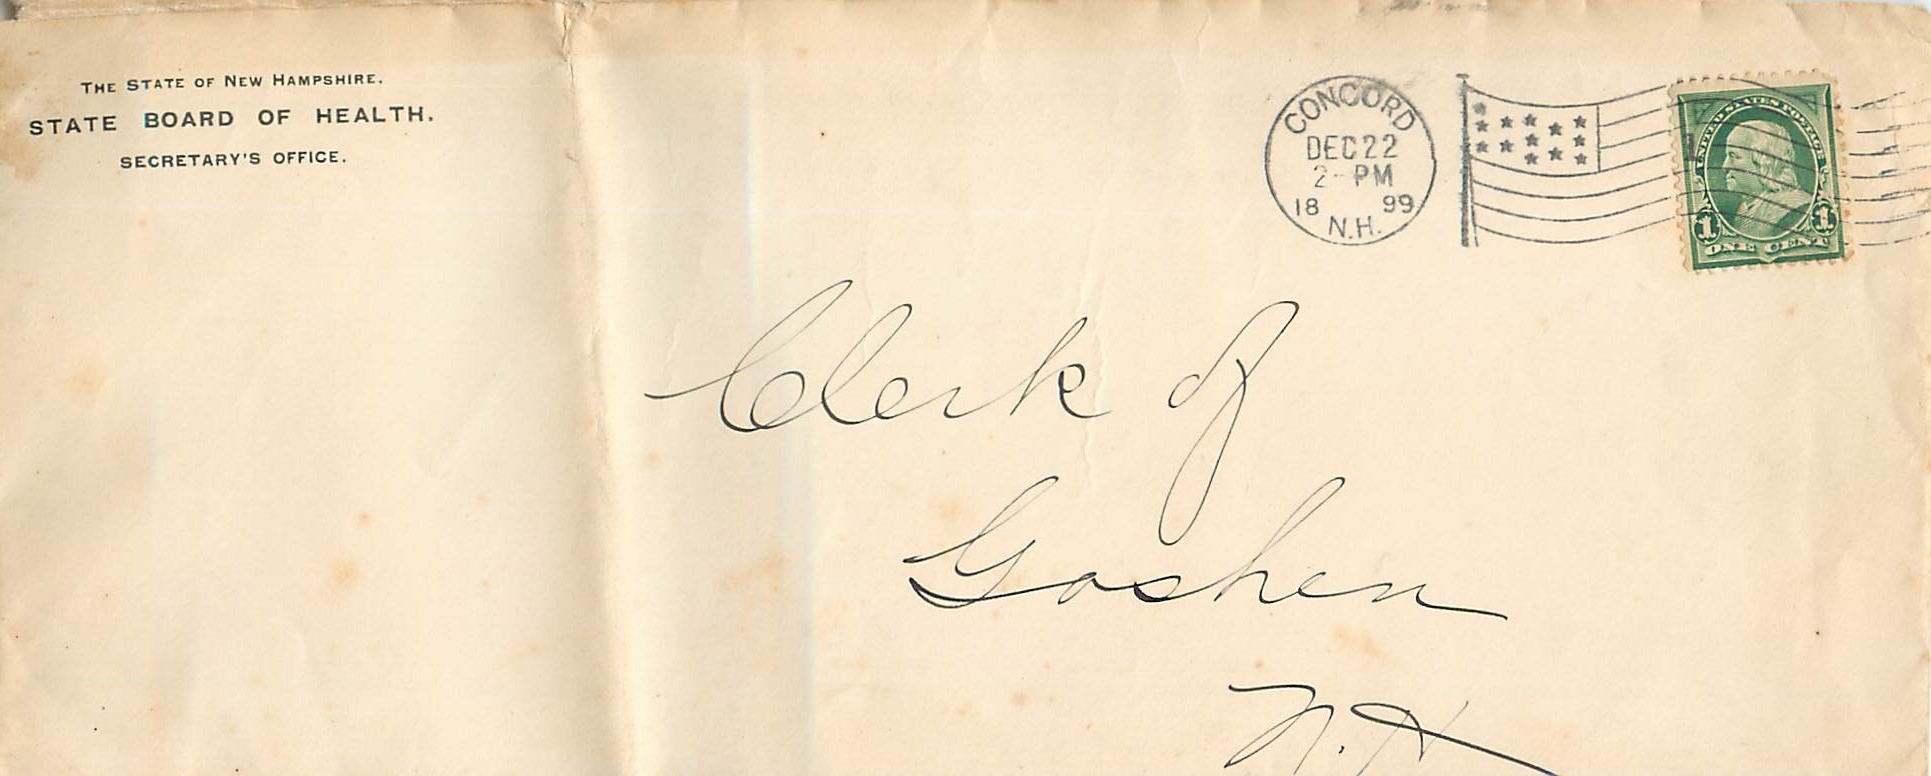 THE STATE OF NEW HAMPSHIRE.
STATE BOARD OF HEALTH.
SECRETARY'S OFFICE.
CONCORD
DEC 22
2 - PM
18 99
N.H.
1
UNITED STATES POSTAGE
1 1
ONE CENT
Clerk of
Goshen
N.H.